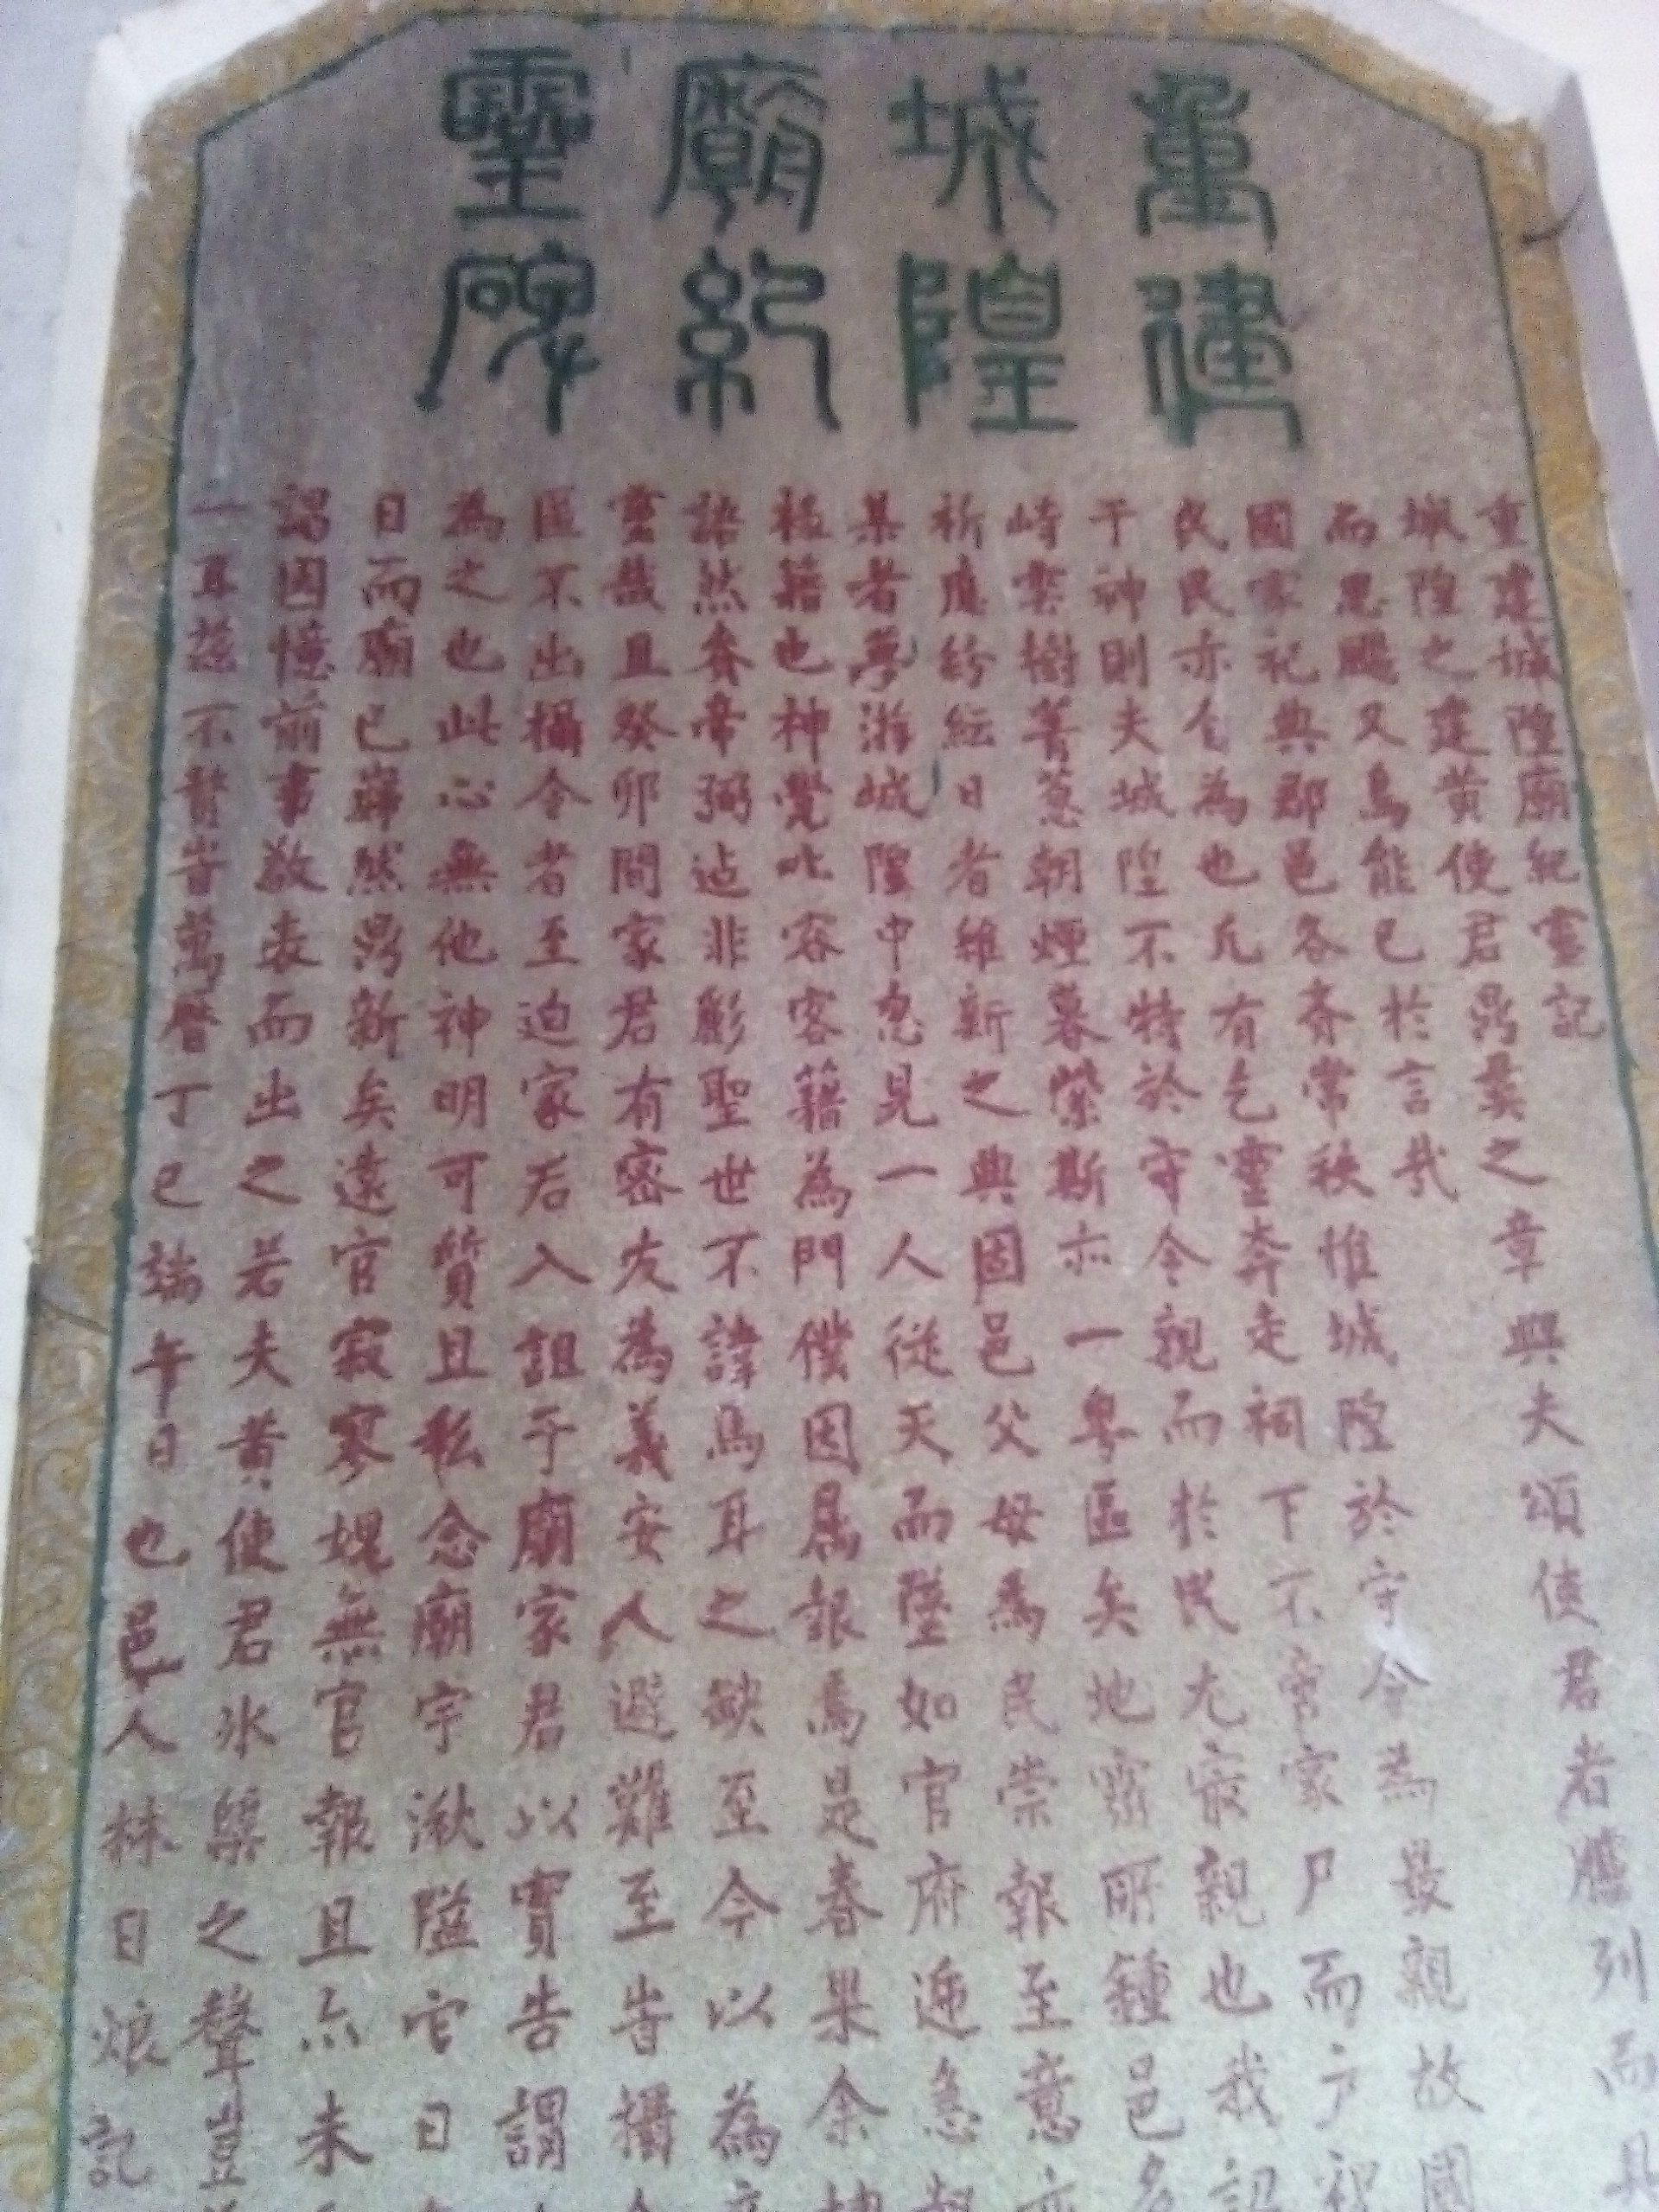 重建
城隍
廟紀
靈碑
重建城隍廟紀靈記
城隍之建黃使君鼎彞之章與夫頌使君者臚列而具
而思颺又烏能已於言哉
國家祀典郡邑各有常秩惟城隍於守令為最親故國
民民亦仝為也凡有乞靈奔走祠下不啻家尸而戶祝
干神則夫城隍不特於守令親而於民尤最親也我詔
峙雲樹菁蔥朝煙暮紫斯亦一粵區矣地靈所鍾邑多
祈應紛紜日者維新之典固邑父母為民崇報至意亦
某者夢游城隍中忽見一人從天而墜如官府迎急趨
極籍也神覺叱容客籍為門僕因屬報焉是春果余捷
語然賚帝弼迨非影聖世不諱焉耳之缺至今以為
靈哉且癸卯間家君有密友為義安人避難至皆攝令
匿不出攝令者至迫家后入詛于廟家君以實告謂
為之也此心無他神明可質且私念廟宇湫隘它日
日而廟已巋然鼎新矣遠官寂寥媿無官報且亦未
謁因憶前事敬表而出之若夫黃使君冰檗之聲豈
一耳茲不贅旹萬曆丁巳端午日也邑人林日烺記